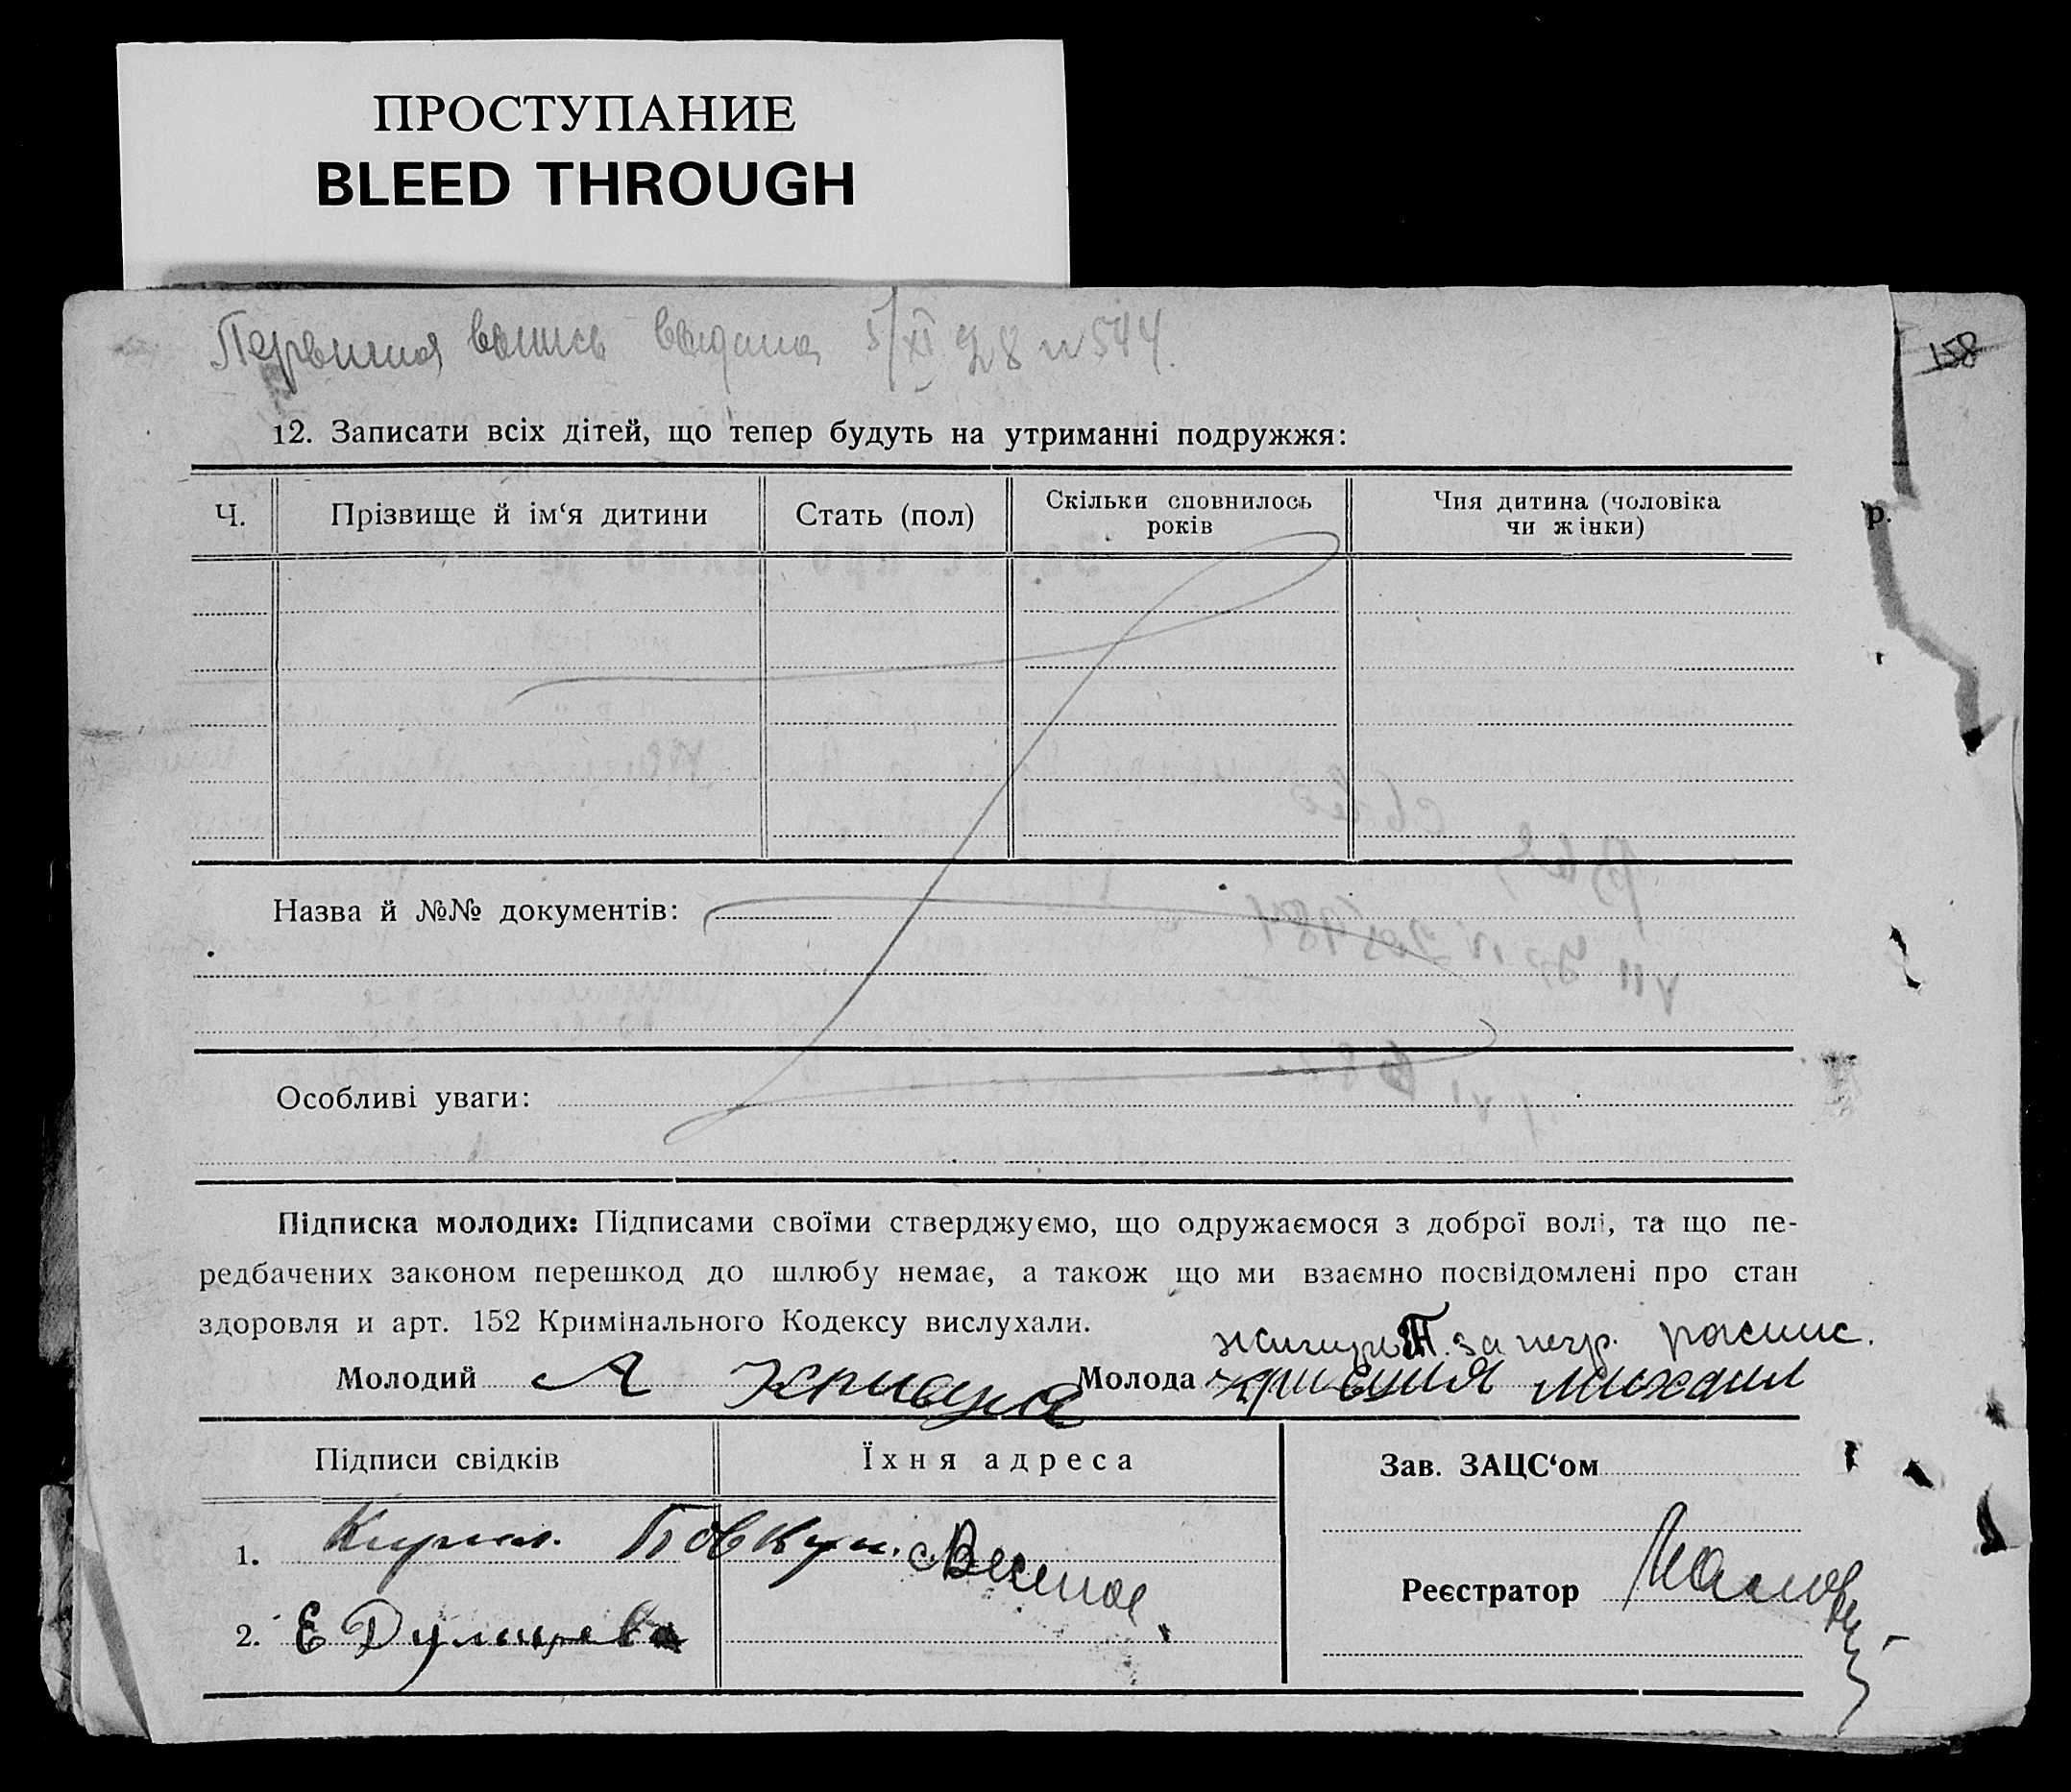 ПРОСТУПАНИЕ
BLEED THROUGH
выпись выдана 5/XI 28 N 544.
158
12. Записати всіх дітей, що тепер будуть на утриманні подружжя:
Ч. Прізвище й ім‘я дитини Стать (пол) Скільки сповнилось років Чия дитина (чоловіка чи жінки)
р.
Назва й №№ документів:
Особливі уваги:
Підписка молодих: Підписами своїми стверджуємо, що одружаємося з доброї волі, та що пе-
редбачених законом перешкод до шлюбу немає, а також що ми взаємно посвідомлені про стан
здоровля и арт. 152 Кримінального Кодексу вислухали.
Молодий А Молода
Підписи свідків Їхня адреса Зав. ЗАЦС‘ом
1. Кирил. Бовкун.
Реєстратор
2. Е